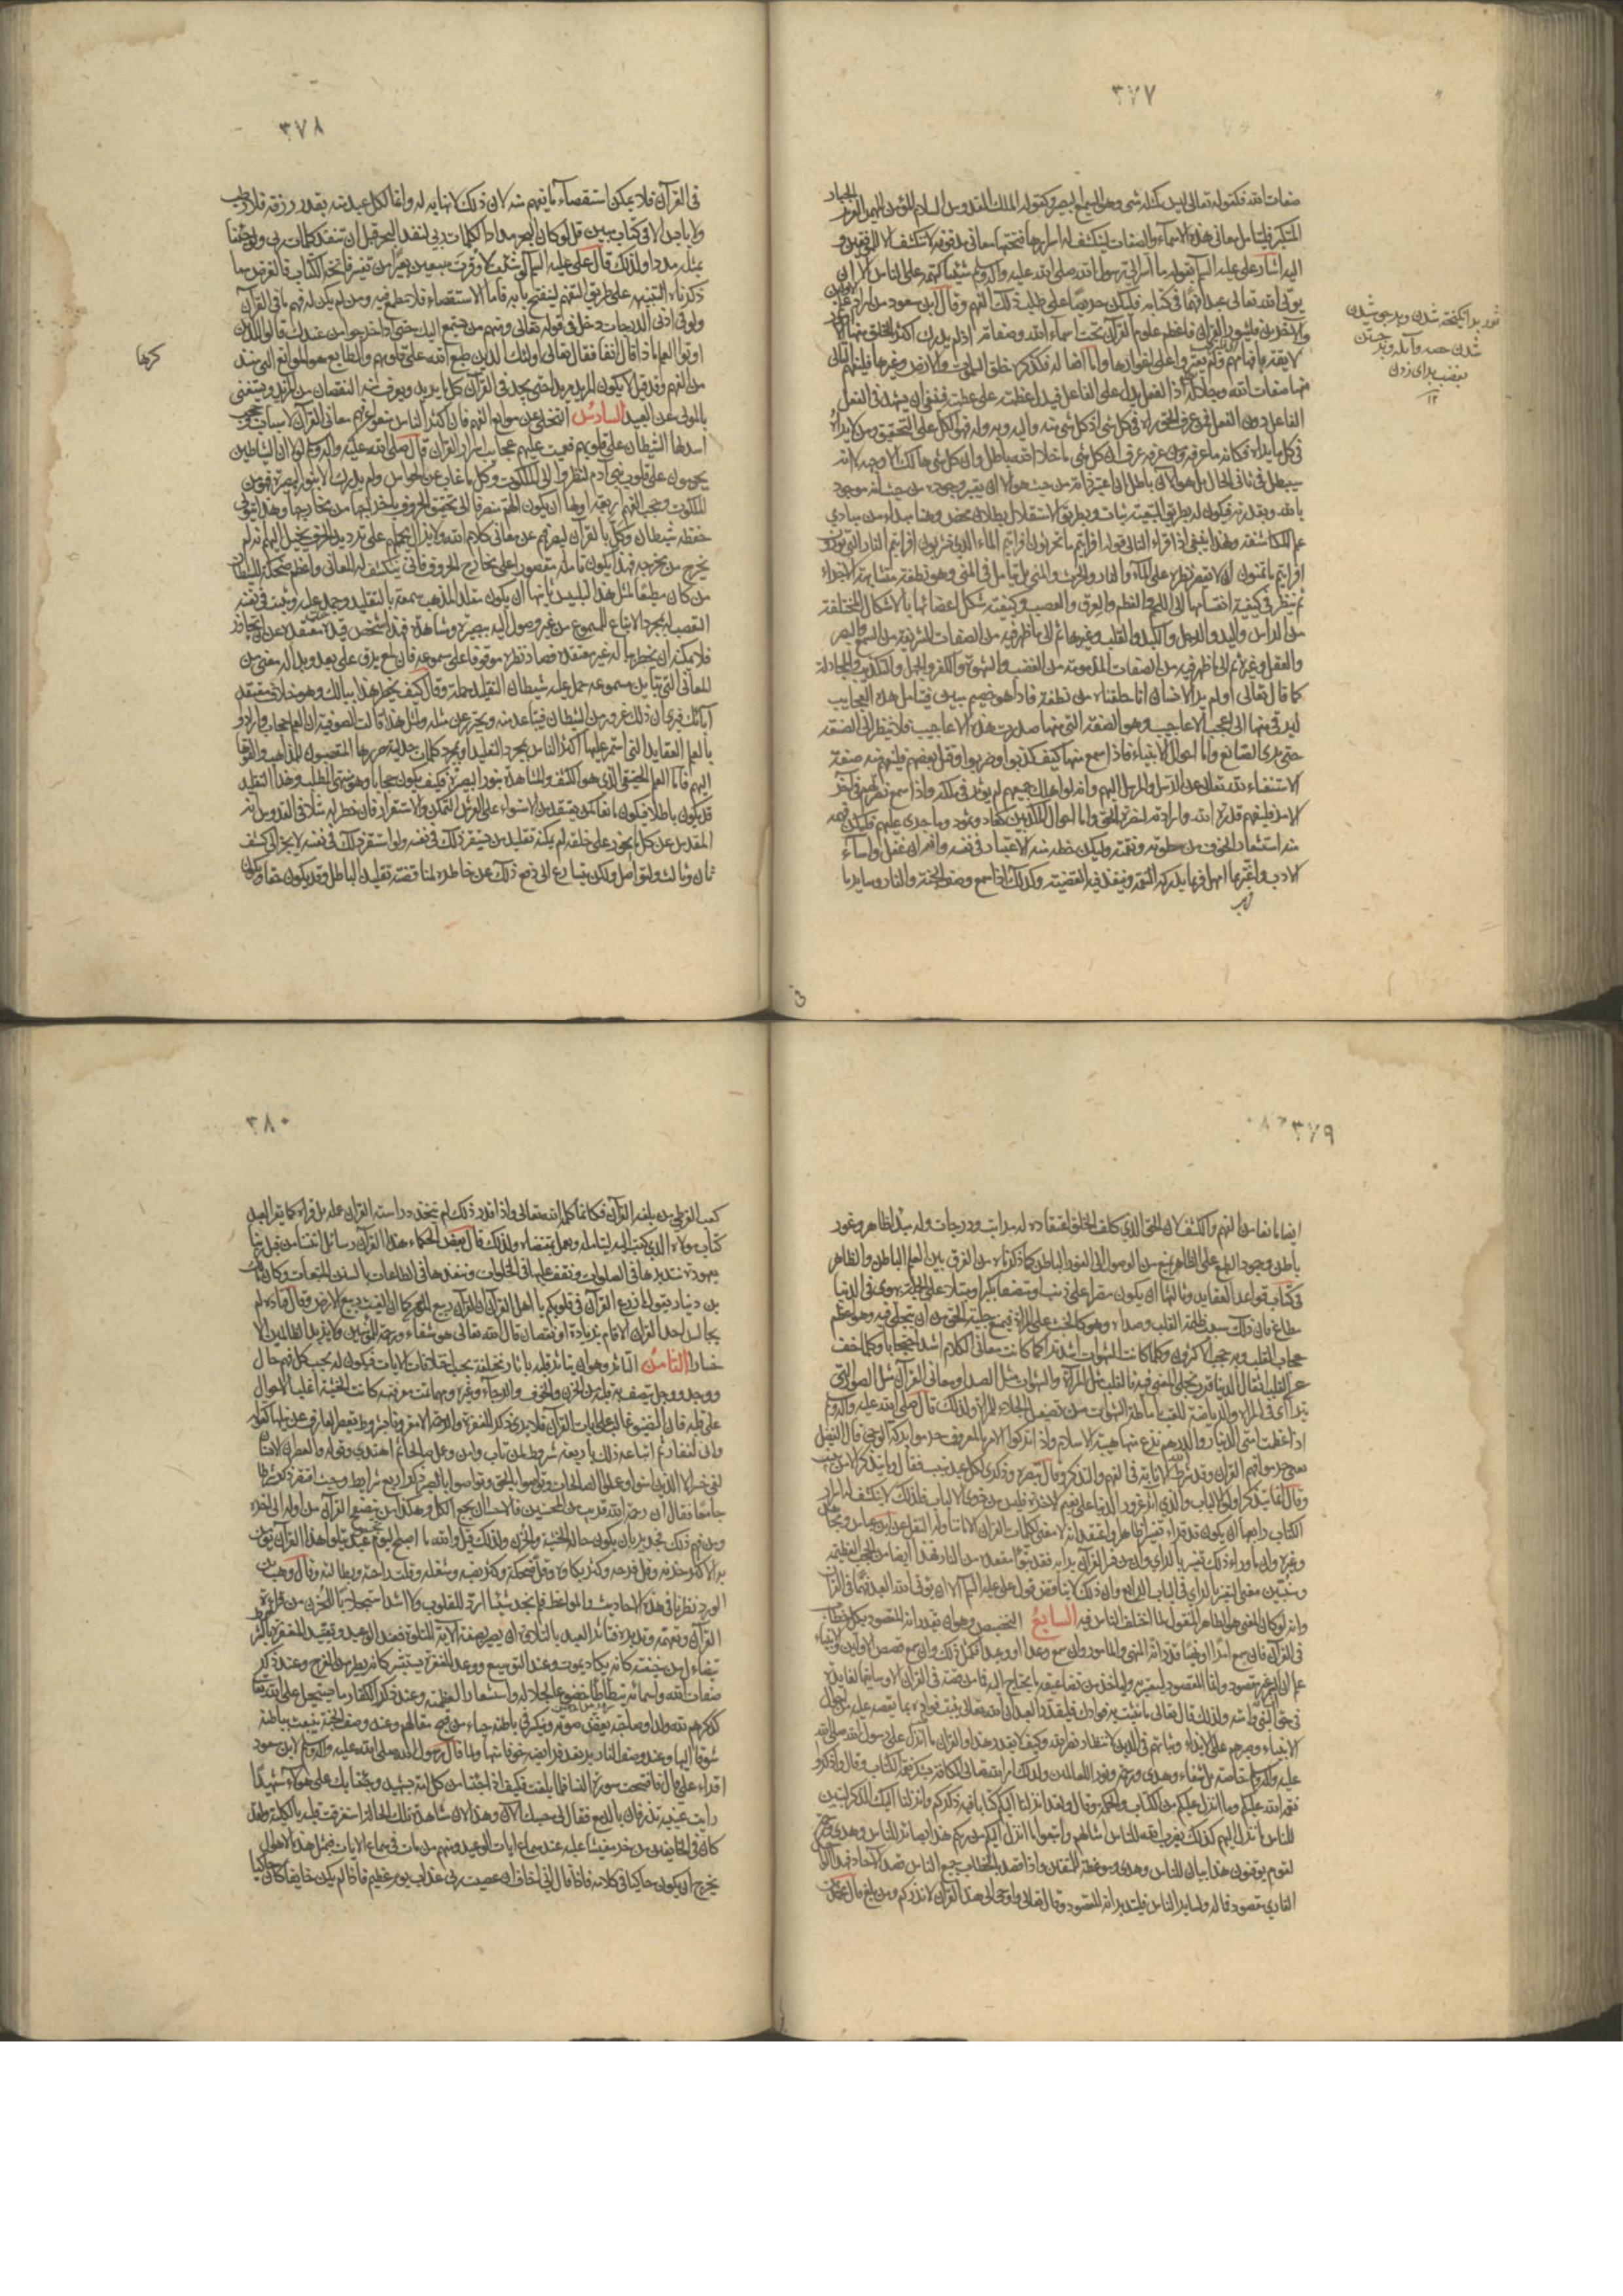 ٣٧٧
صفات الله فكقوله تعالى ليس كمثله شئ وهو السميع البصير وكقوله الملك القدوس السلام المؤمن المهيمن العزيز الجبار
المتكبر فليتأمل معانى هذه الاسماء والصفات لينكشف له اسرارها فتحتها معانى مدفونة لا تنكشف الا للموفقين و
اليه اشار على عليه السلم بقوله ما أسر الى رسول الله صلى الله عليه واله وسلم شيئا كتمه على الناس الا ان
يؤتى الله تعالى عبدا فهما فى كتابه فليكن حريصا على طلب ذلك الفهم وقال ابن مسعود من اراد علم الاولين
والآخرين فليثور القرآن فاعظم علوم القرآن تحت اسماء الله وصفاته اذ لم يدرك اكثر الخلق منها الا
لا يقة بافهامهم ولم يعثروا على اغوارها واما افعاله فكذكره خلق السموات والارض وغيرها فليفهم التالى
منها صفات الله وجلاله اذ الفعل يدل على الفاعل فيدل عظمته على عظمته فينبغى ان يشهد فى الفعل
الفاعل دون الفعل فمن عرف الحق رآه فى كل شئ اذ كل شئ منه واليه وبه وله فهو الكل على التحقيق ومن لا يراه
فى كل ما يراه فكانه ما عرفه ومن عرفه عرف ان كل شئ ما خلا الله باطل وان كل شئ هالك الا وجهه لا انه
سيبطل فى ثانى الحال بل هو الآن باطل ان اعتبر ذاته من حيث هو الا ان يعتبر وجوده من حيث انه موجود
بالله وبقدرته فيكون له بطريق التبعية ثبات وبطريق الاستقلال بطلان محض وهذا مبداء من مبادى
علم المكاشفة ولهذا ينبغى اذا قراء التالى قوله افرايتم ما تحرثون افرايتم الماء الذى تشربون افرايتم النار التى تورون
افرايتم ما تمنون ان لا يقصر نظره على الماء والنار والحرث والمنى بل يتأمل فى المنى وهو نطفة متشابهة الاجزاء
ثم ينظر فى كيفية انقسامها الى اللحم والعظم والعرق والعصب وكيفية تشكل اعضائها بالاشكال المختلفة
من الرأس واليد والرجل والكبد والقلب وغيرها ثم الى ما ظهر فيه من الصفات الشريفة من السمع والبصر
والعقل وغيره ثم الى ما ظهر فيه من الصفات المذمومة من الغضب والشهوة والكفر والجهل والتكذيب والمجادلة
كما قال تعالى اولم ير الانسان انا خلقناه من نطفة فاذا هو خصيم مبين فيتأمل هذه العجايب
ليترقى منها الى اعجب الاعاجيب وهو الصفة التى منها صدرت هذه الاعاجيب فلا يزال ينظر الى الصنعة
حتى يرى الصانع واما احوال الانبياء فاذا سمع منها كيف كذبوا وضربوا وقتل بعضهم فليفهم منه صفة
الاستغناء لله تعالى عن الرسل والمرسل اليهم وانه لو اهلك جميعهم لم يؤثر فى ملكه واذا سمع نصرتهم فى آخر
الامر فليفهم قدرة الله وارادته لنصرة الحق واما احوال المكذبين كعاد وثمود وما جرى عليهم فليكن فهمه
منه استشعار الخوف من سطوته ونقمته وليكن حظه منه الاعتبار فى نفسه وانه ان غفل واساء
الادب واغتر بما امهل فربما يدركه النقمة وينفذ فيه القضية وكذلك اذا سمع وصف الجنة والنار وساير ما
ثور برانگیخته شدن
٣٧٨
فى القرآن فلا يمكن استقصاء ما يفهم منه لان ذلك لا نهاية له وانما لكل عبد منه بقدر رزقه فلا رطب
ولا يابس الا فى كتاب مبين قل لو كان البحر مدادا لكلمات ربى لنفد البحر قبل ان تنفد كلمات ربى ولو جئنا
بمثله مددا ولذلك قال على عليه السلم لو شئت لاوقرت سبعين بعيرا من تفسير فاتحة الكتاب فالغرض مما
ذكرناه التنبيه على طريق التفهم لينفتح بابه فاما الاستقصاء فلا مطمع فيه ومن لم يكن له فهم ما فى القرآن
ولو فى ادنى الدرجات دخل فى قوله تعالى ومنهم من يستمع اليك حتى اذا خرجوا من عندك قالوا للذين
اوتوا العلم ماذا قال آنفا فقال تعالى اولئك الذين طبع الله على قلوبهم والطابع هو الموانع التى
من الفهم وقد قيل لا يكون المريد مريدا حتى يجد فى القرآن كل ما يريد ويعرف منه النقصان من المزيد ويستغنى
بالمولى عن العبيد السادس التخلى عن موانع الفهم فان اكثر الناس منعوا عن فهم معانى القرآن لاسباب وحجب
اسدلها الشيطان على قلوبهم فعميت عليهم عجايب اسرار القرآن قال صلى الله عليه واله وسلم لولا ان الشياطين
يحومون على قلوب بنى آدم لنظروا الى الملكوت وكل ما غاب عن الحواس ولم يدرك الا بنور البصيرة فهو من
الملكوت وحجب الفهم اربعة اولها ان يكون الهم منصرفا الى تحقيق الحروف باخراجها من مخارجها وهذا يتولى
حفظه شيطان وكل بالقرآن ليصرفهم عن معانى كلام الله ولا يزال يحملهم على ترديد الحرف يخيل اليهم انه لم
يخرج من مخرجه فهذا يكون تأمله مقصورا على مخارج الحروف فانى ينكشف له المعانى واعظم ضحكة للشيطان
من كان مطيعا لمثل هذا التلبيس ثانيها ان يكون مقلدا لمذهب سمعه بالتقليد وجمد عليه وثبت فى نفسه
التعصب له بمجرد الاتباع للمسموع من غير وصول اليه ببصيرة ومشاهدة فهذا شخص قيده معتقده عن ان يجاوزه
فلا يمكنه ان يخطر بباله غير معتقده فصار نظره موقوفا على مسموعه فان لمع برق على بعد وبدا له معنى من
المعانى التى تباين مسموعه حمل عليه شيطان التقليد حملة وقال كيف يخطر هذا ببالك وهو خلاف معتقد
آبائك فيرى ان ذلك غرور من الشيطان فيتباعد منه ويحترز عن مثله ولمثل هذا قالت الصوفية ان العلم حجاب وارادوا
بالعلم العقايد التى استمر عليها اكثر الناس بمجرد التقليد او بمجرد كلمات جدلية حررها المتعصبون للمذاهب والقوها
اليهم فاما العلم الحقيقى الذى هو الكشف والمشاهدة بنور البصيرة فكيف يكون حجابا وهو منتهى المطلب وهذا التقليد
قد يكون باطلا فيكون مانعا كمن يعتقد من الاستواء على العرش التمكن والاستقرار فان خطر له مثلا فى القدوس انه
المقدس عن كل ما يجوز على خلقه لم يمكنه تقليده من ان يستقر ذلك فى نفسه ولو استقر ذلك فى نفسه لانجر الى كشف
ثان وثالث ولتواصل ولكن يتسارع الى دفع ذلك عن خاطره لمناقضته تقليده الباطل وقد يكون حقا ويكون
كرها
٣٧٩
ايضا مانعا من الفهم والكشف لان الحق الذى كلف الخلق اعتقاده له مراتب ودرجات وله مبدأ ظاهر وغور
باطن وجمود الطبع على الظاهر يمنع من الوصول الى الغور الباطن كما ذكرناه من الفرق بين العلم الباطن والظاهر
فى كتاب قواعد العقايد وثالثها ان يكون مصرا على ذنب او متصفا بكبر او مبتلا على الجملة بهوى فى الدنيا
مطاع فان ذلك سبب ظلمة القلب وصداه وهو كالخبث على المرآة فيمنع جلية الحق من ان يتجلى فيه وهو اعظم
حجاب للقلب وبه حجب الاكثرون وكلما كانت الشهوات اشد تراكما كانت معانى الكلام اشد احتجابا وكلما خف
عن القلب اثقال الدنيا قرب تجلى المعنى فيه فالقلب مثل المرآة والشهوات مثل الصداء ومعانى القرآن مثل الصور التى
تتراآى فى المرآة والرياضة للقلب باماطة الشهوات مثل تصقيل الجلاء للمرآة ولذلك قال صلى الله عليه واله وسلم
اذا عظمت امتى الدينار والدرهم نزع منها هيبة الاسلام واذا تركوا الامر بالمعروف حرموا بركة الوحى قال الفضيل
يعنى حرموا فهم القرآن وقد شرط الله الانابة فى الفهم والتذكر وقال تبصرة وذكرى لكل عبد منيب وقال وما يتذكر الا من ينيب
وقال انما يتذكر اولوا الالباب والذى آثر غرور الدنيا على نعيم الآخرة فليس من ذوى الالباب فلذلك لا ينكشف له اسرار
الكتاب رابعها ان يكون قد قراء تفسيرا ظاهرا واعتقد انه لا معنى لكلمات القرآن الا ما تناوله النقل عن ابن عباس ومجاهد
وغيره وان ما وراء ذلك تفسير بالرأى وان من فسر القرآن برأيه فقد تبوأ مقعده من النار فهذا ايضا من الحجب العظيمة
وسنبين معنى التفسير بالرأى فى الباب الرابع وان ذلك لا يناقض قول على عليه السلم الا ان يؤتى الله العبد فهما فى القرآن
وانه لو كان المعنى هو الظاهر المنقول لما اختلف الناس فيه السابع التخصيص وهو ان يقدر انه المقصود بكل خطاب
فى القرآن فان سمع امرا او نهيا قدر انه المنهى والمأمور وان سمع وعدا او وعيدا فكمثل ذلك وان سمع قصص الاولين والانبياء
علم ان السمر غير مقصود وانما المقصود ليعتبر به وليأخذ من تضاعيفه ما يحتاج اليه فما من قصة فى القرآن الا وسياقها لفايدة
فى حق النبى وامته ولذلك قال تعالى ما نثبت به فؤادك فليقدر العبد ان الله تعالى يثبت فؤاده بما يقصه عليه من احوال
الانبياء وصبرهم على الايذاء وثباتهم فى الدين لانتظار نصر الله وكيف لا يقدر هذا والقرآن ما انزل على رسول الله صلى الله
عليه واله وسلم خاصة بل شفاء وهدى ورحمة ونور للعالمين ولذلك امر الله تعالى الكافة بشكر نعمة الكتاب وقال واذكروا
نعمة الله عليكم وما انزل عليكم من الكتاب والحكمة وقال ولقد انزلنا اليكم كتابا فيه ذكركم وانزلنا اليك الذكر لتبين
للناس ما نزل اليهم كذلك يضرب الله للناس امثالهم واتبعوا ما انزل اليكم من ربكم هذا بصائر للناس وهدى ورحمة
لقوم يوقنون هذا بيان للناس وهدى وموعظة للمتقين واذا قصد بالخطاب جميع الناس فقد قصد الآحاد فهذا
القارى مقصود فماله ولساير الناس فليقدر انه المقصود وقال تعالى واوحى الى هذا القرآن لانذركم به ومن بلغ قال محمد بن
٣٨٠
كعب القرظى من بلغه القرآن فكانما كلمه الله تعالى واذا قدر ذلك لم يتخذ دراسة القرآن عمله بل قراه كما يقرأ العبد
كتاب مولاه الذى كتب اليه ليتأمله ويعمل بمقتضاه ولذلك قال بعض الحكماء هذا القرآن رسائل اتتنا من قبل ربنا
بعهوده نتدبرها فى الصلوات ونقف عليها فى الخلوات وننفذها فى الطاعات بالسنن المتبعات وكان مالك
بن دينار يقول ما زرع القرآن فى قلوبكم يا اهل القرآن ان القرآن ربيع المؤمن كما ان الغيث ربيع الارض وقال قتادة لم
يجالس احد القرآن الا قام بزيادة او نقصان قال الله تعالى هو شفاء ورحمة للمؤمنين ولا يزيد الظالمين الا
خسارا الثامن التأثر وهو ان يتأثر قلبه بآثار مختلفة بحسب اختلاف الآيات فيكون له بحسب كل فهم حال
ووجد ووجل يتصف به قلبه من الحزن والخوف والرجاء وغيره ومهما تمت معرفته كانت الخشية اغلب الاحوال
على قلبه فان التضييق غالب على آيات القرآن فلا يرى ذكر المغفرة والرحمة الا مقرونا بشروط يقصر العارف عن نيلها كقوله
وانى لغفار ثم اتباعه ذلك باربعة شروط لمن تاب وامن وعمل صالحا ثم اهتدى وقوله والعصر ان الانسان
لفى خسر الا الذين امنوا وعملوا الصالحات وتواصوا بالحق وتواصوا بالصبر ذكر اربع شرايط وحيث اقتصر ذكر شرطا
جامعا فقال ان رحمة الله قريب من المحسنين فالاحسان يجمع الكل وهكذا من يتصفح القرآن من اوله الى آخره
ومن فهم ذلك فجدير بان يكون حاله الخشية والحزن ولذلك قيل والله ما اصبح اليوم عبد يتلوا هذا القرآن يؤمن
به الا كثر حزنه وقل فرحه وكثر بكاؤه وقل ضحكه وكثر نصبه وشغله وقلت راحته وبطالته وقال وهيب بن
الورد نظرنا فى هذه الاحاديث والمواعظ فلم نجد شيئا ارق للقلوب ولا اشد استجلابا للحزن من قراءة
القرآن وتفهمه وتدبره فتأثر العبد بالتلاوة ان يصير بصفة الآية المتلوة فعند الوعيد وتقييد المغفرة بالشروط
يتضاءل من خيفته كانه يكاد يموت وعند التوسيع ووعد المغفرة يستبشر كانه يطير من الفرح وعند ذكر
صفات الله واسمائه يتطأطأ خضوعا لجلاله واستشعارا لعظمته وعند ذكر الكفار ما يستحيل على الله تعالى
كذكرهم لله ولدا وصاحبة يغض صوته وينكسر فى باطنه حياء من قبح مقالهم وعند وصف الجنة ينبعث بباطنه
شوقا اليها وعند وصف النار يرتعد فرائصه خوفا منها ولما قال رسول الله صلى الله عليه واله وسلم لابن مسعود
اقراء على قال فافتتحت سورة النساء فلما بلغت فكيف اذا جئنا من كل امة بشهيد وجئنا بك على هؤلاء شهيدا
رايت عينيه تذرفان بالدمع فقال لى حسبك الآن وهذا لان مشاهدة تلك الحالة استغرقت قلبه بالكلية ولقد
كان فى الخائفين من خر مغشيا عليه عند سماع آيات الوعيد ومنهم من مات فى سماع الآيات فبمثل هذه الاحوال
يخرج ان يكون حاكيا فى كلامه فاذا قال انى اخاف ان عصيت ربى عذاب يوم عظيم فاذا لم يكن خايفا كان حاكيا